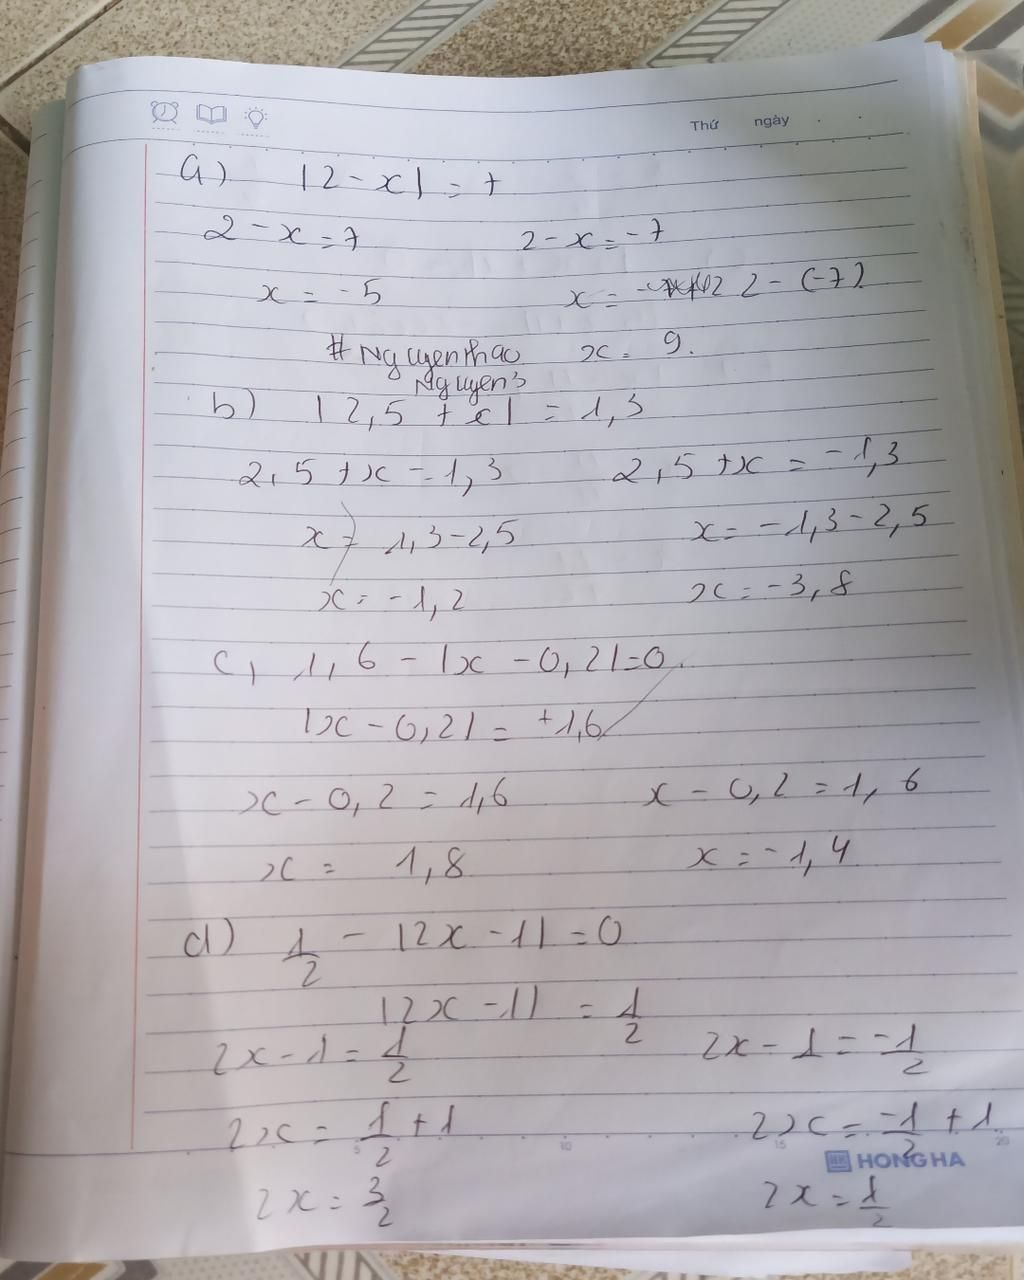 Thứ ngày
a) |2-x| = 7
2-x=7 2-x=-7
x = -5 x = 2-(-7)
#Nguyenthao x = 9.
Nguyen3
b) |2,5 + x| = 1,3
2,5 + x = 1,3 2,5 + x = -1,3
x = 1,3-2,5 x = -1,3-2,5
x = -1,2 x = -3,8
c, 1,6 - |x - 0,2|=0.
|x - 0,2| = +1,6
x - 0,2 = 1,6 x - 0,2 = 1,6
x = 1,8 x = -1,4
d) 1/2 - |2x - 1| = 0
|2x - 1| = 1/2
2x - 1 = 1/2 2x - 1 = -1/2
2x = 1/2 + 1 2x = -1/2 + 1
5 10 15 20
HONG HA
2x = 3/2 2x = 1/2